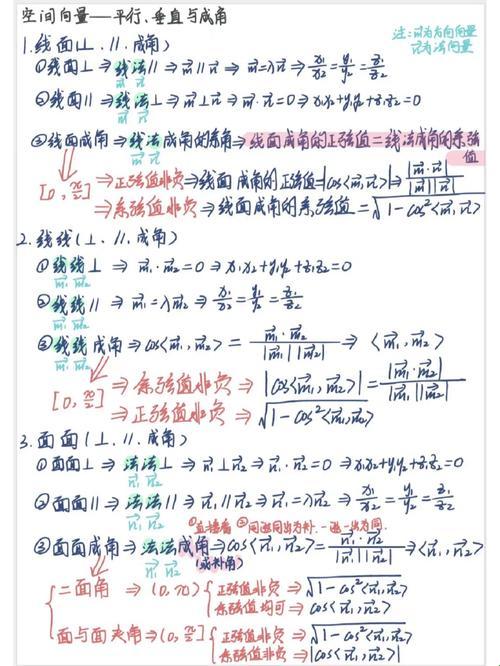 空间向量——平行、垂直与成角
注:m⃗为方向向量
n⃗为法向量
1.线面(⊥、∥、成角)
①线面⊥⇒线法∥⇒m⃗∥n⃗⇒m⃗=λn⃗⇒x₁/x₂=y₁/y₂=z₁/z₂
m⃗ n⃗
②线面∥⇒线法⊥⇒m⃗⊥n⃗⇒m⃗·n⃗=0⇒x₁x₂+y₁y₂+z₁z₂=0
m⃗ n⃗
③线面成角⇒线法成角的余角⇒线面成角的正弦值=线法成角的余弦值
m⃗ n⃗
[0,π/2]⇒正弦值非负⇒线面成角的正弦值=|cos<m⃗,n⃗>|⇒|m⃗·n⃗|/|m⃗||n⃗|
⇒余弦值非负⇒线面成角的余弦值=√1-cos²<m⃗,n⃗>
2.线线(⊥、∥、成角)
①线线⊥⇒m⃗₁·m⃗₂=0⇒x₁x₂+y₁y₂+z₁z₂=0
m⃗₁ m⃗₂
②线线∥⇒m⃗₁=λm⃗₂⇒x₁/x₂=y₁/y₂=z₁/z₂
m⃗₁ m⃗₂
③线线成角⇒cos<m⃗₁,m⃗₂>=m⃗₁·m⃗₂/|m⃗₁||m⃗₂|⇒<m⃗₁,m⃗₂>
m⃗₁ m⃗₂
[0,π/2]⇒余弦值非负⇒|cos<m⃗₁,m⃗₂>|=|m⃗₁·m⃗₂|/|m⃗₁||m⃗₂|
⇒正弦值非负⇒√1-cos²<m⃗₁,m⃗₂>
3.面面(⊥、∥、成角)
①面面⊥⇒法法⊥⇒n⃗₁⊥n⃗₂⇒n⃗₁·n⃗₂=0⇒x₁x₂+y₁y₂+z₁z₂=0
n⃗₁ n⃗₂
②面面∥⇒法法∥⇒n⃗₁∥n⃗₂⇒n⃗₁=λn⃗₂⇒x₁/x₂=y₁/y₂=z₁/z₂
n⃗₁ n⃗₂
①直接看 ②同进同出为补.一进一出为同.
③面面成角⇒法法成角⇒cos<n⃗₁,n⃗₂>=n⃗₁·n⃗₂/|n⃗₁||n⃗₂|⇒<n⃗₁,n⃗₂>
n⃗₁ n⃗₂ (或补角)
二面角⇒(0,π) 正弦值非负⇒√1-cos²<n⃗₁,n⃗₂>
余弦值均可⇒cos<n⃗₁,n⃗₂>
面与面夹角⇒(0,π/2] 正弦值非负⇒√1-cos²<n⃗₁,n⃗₂>
余弦值非负⇒|cos<n⃗₁,n⃗₂>|